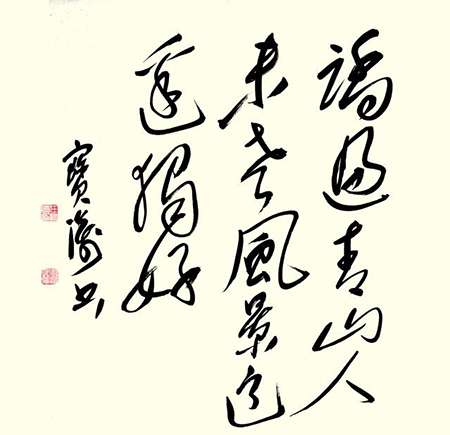 踏遍青山人
未老風景這
邊獨好
寶書